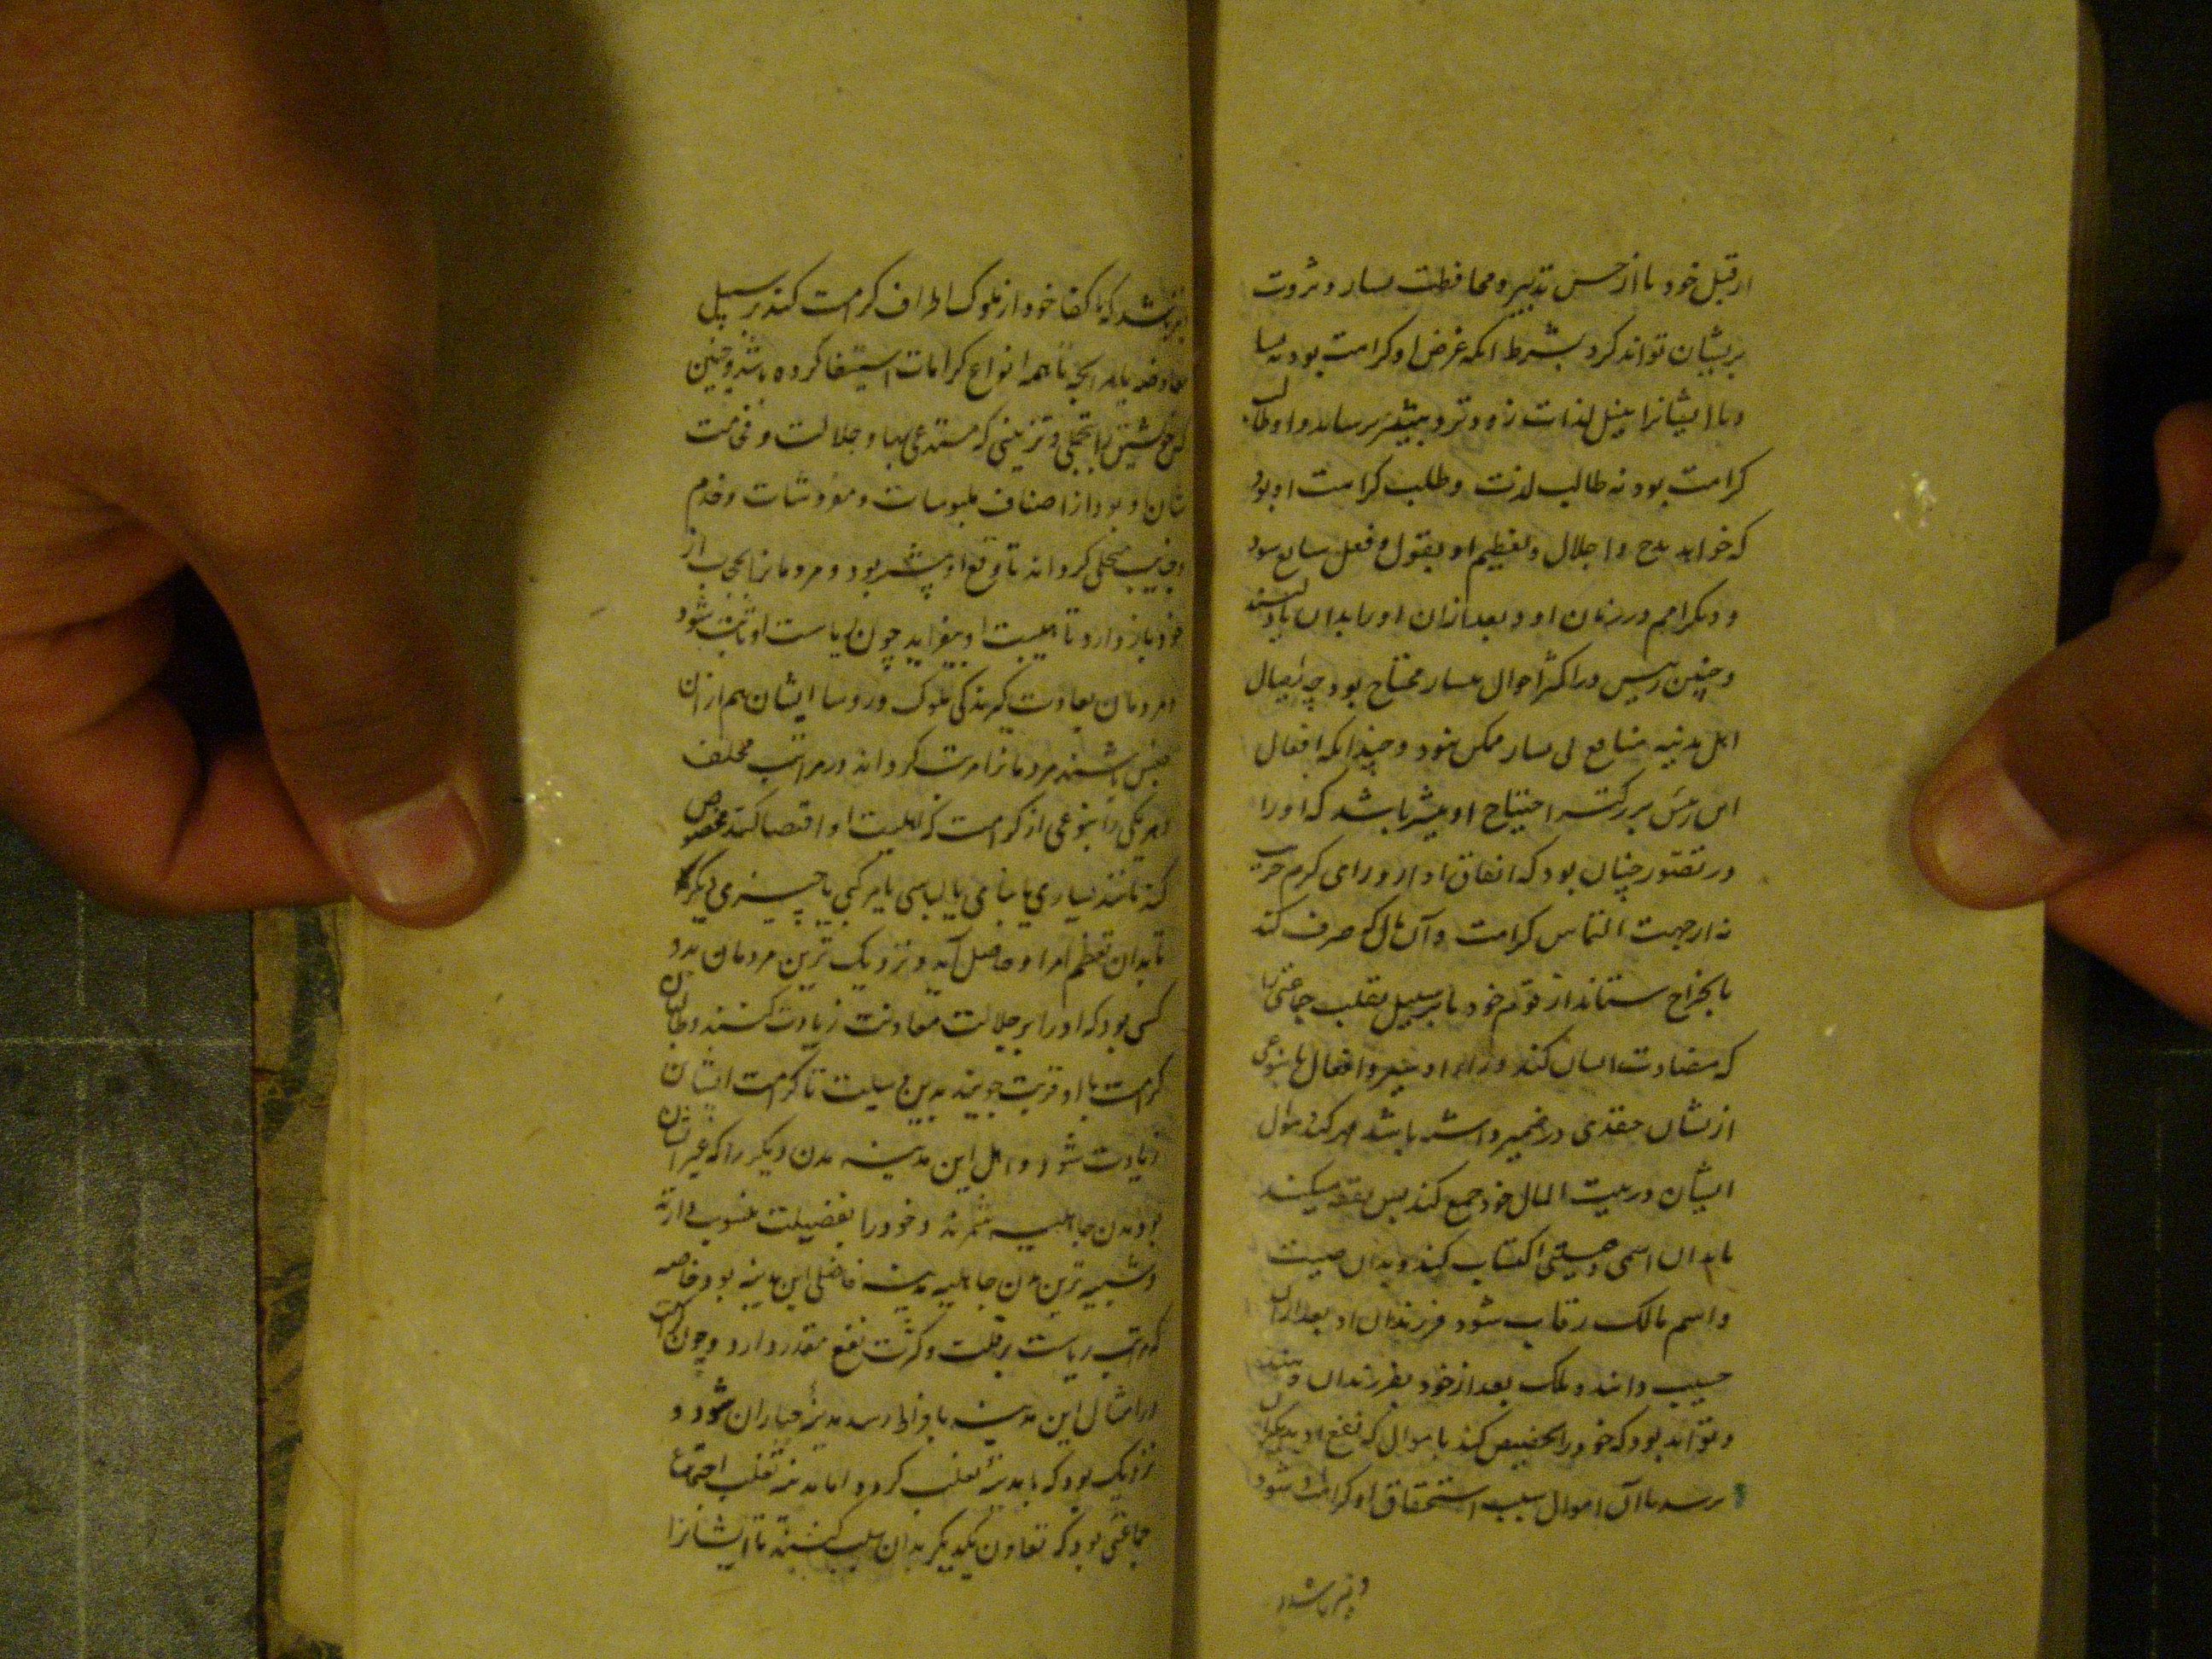 از قبل خود یا از حسن تدبیر و محافظت یسار و ثروت
بریشان تواند کرد بشرط انکه غرض او کرامت بود نه یسا
و یا ایشانرا بنیل لذات زودتر و بیشتر برساند و او طالب
کرامت بود نه طالب لذت و طلب کرامت او بود
که خواهد مدح و اجلال و تعظیم او بقول و فعل شایع شود
و دیگر امم در زمان او و بعد از آن او را بدان یاد کنند
و چنین رئیس در اکثر احوال بیسار محتاج بود چه ایصال
اهل مدینه بمنافع بی یسار ممکن نبود و چندانکه افعال
این رئیس بزرگتر احتیاج او بیشتر باشد که او را
در تصور چنان بود که انفاق او از روی کرم و حریت
نه از جهت التماس کرامت و آن مال که صرف کند
یا بخراج ستاند از قوم خود یا بر سبیل تغلب جماعتی را
که مضادت ایشان کند در و افعال یا بنوعی
از یشان حقدی در ضمیر داشته باشد قهر کند و اموال
ایشان در بیت المال خود جمع کند پس نفقه میکند
تا بدان اسمی و صیتی اکتساب کند و بدان صیت
و اسم مالک رقاب شود و فرزندان او بعد از آن
حسیب دانند و ملک بعد از خود بفرزندان دهند
و تواند بود که خود را تخصیص کند باموال که نفع او بدیگران
نرسد تا آن اموال سبب استحقاق او کرامت را شود
و نیز باشد
و نیز باشد که با اکفا خود از ملوک اطراف کرامت کند بر سبیل
معاوضه یا مرابحه تا همه انواع کرامات استیفا کرده باشد و چنین
کس خویشتن را بتجملی و تزینی که مستدعی بها و جلالت و فخامت
شان او بود از اصناف ملبوسات و مفروشات و خدم
و جنایب متحلی گرداند تا وقع او بیشتر بود و مردمانرا بحجاب از
خود باز دارد تا هیبت او بیفزاید چون ریاست او ثابت شود
و مردمان بعادت گیرند که ملوک و روسا ایشان هم از آن
جنس باشند مردمانرا مرتب گرداند در مراتب مختلف
و هر یکی را بنوعی از کرامت که اهلیت او اقتضا کند مخصوص
کند مانند یساری یا ثنائی یا لباسی یا مرکبی یا چیزی دیگر
تا بدان تعظیم امر او حاصل آید و نزدیک ترین مردمان بدو
کسی بود که او را بر جلالت معاونت زیادت کند و طالبان
کرامت با او قربت جویند بدین وسیلت تا کرامت ایشان
زیادت شود و اهل این مدینه مدن دیگر را که غیر ایشان
بود مدن جاهلیه شمرند و خود را بفضیلت منسوب دارند
و شبیه ترین مدن جاهلیه بمدینه فاضله این مدینه بود خاصه
که مراتب ریاست بر قلت و کثرت نفع مقدر دارد و چون کرامت
در امثال این مدینه بافراط رسد مدینه جباران شود و
نزدیک بود که با مدینه تغلب گردد و اما مدینه تغلب اجتماع
جماعتی بود که تعاون یکدیگر بدان سبب کنند تا ایشانرا